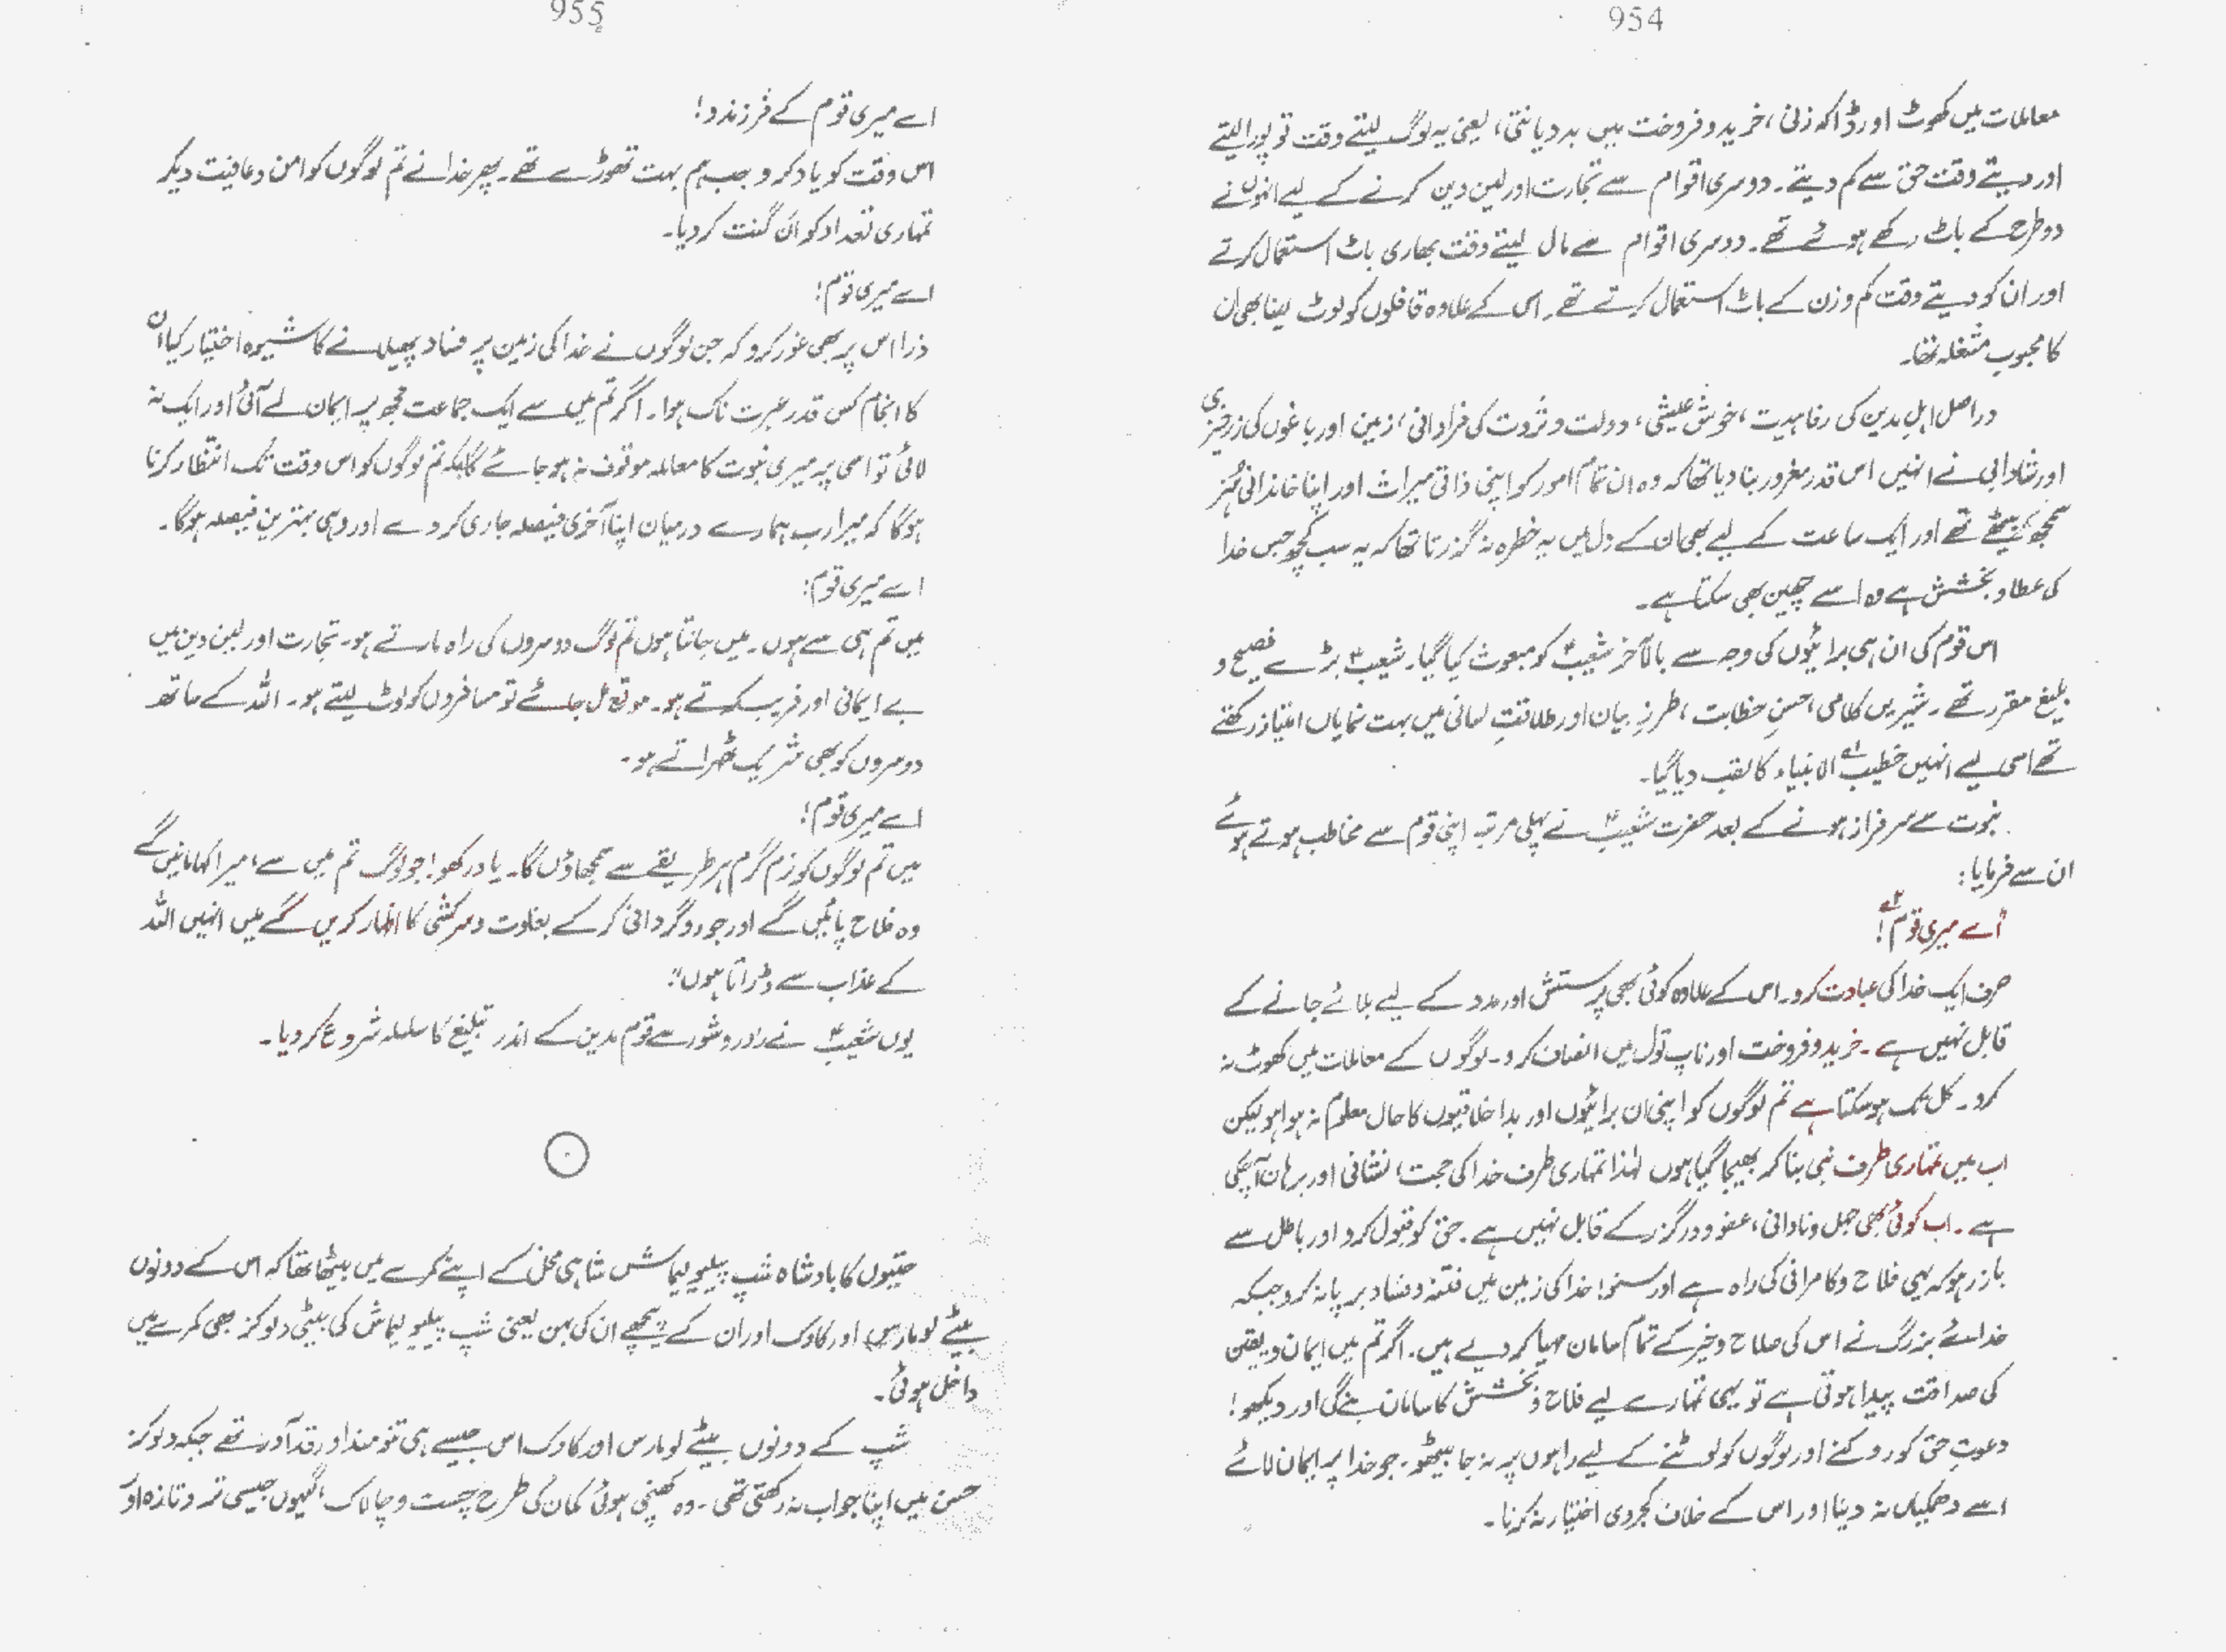 954
معاملات میں کھوٹ اور ڈاکہ زنی، خرید و فروخت میں بددیانتی، یعنی یہ لوگ لیتے وقت تو پورا لیتے
اور دیتے وقت حق سے کم دیتے۔ دوسری اقوام سے تجارت اور لین دین کرنے کے لیے انہوں نے
دو طرح کے باٹ رکھے ہوئے تھے۔ دوسری اقوام سے مال لیتے وقت بھاری باٹ استعمال کرتے
اور ان کو دیتے وقت کم وزن کے باٹ استعمال کرتے تھے۔ اس کے علاوہ قافلوں کو لوٹ لینا بھی ان
کا محبوب مشغلہ تھا۔
دراصل اہلِ مدین کی رفاہیت، خوش عیشی، دولت و ثروت کی فراوانی، زمین اور باغوں کی زرخیزی
اور شادابی نے انہیں اس قدر مغرور بنا دیا تھا کہ وہ ان تمام امور کو اپنی ذاتی میراث اور اپنا خاندانی ہُنر
سمجھ بیٹھے تھے اور ایک ساعت کے لیے بھی ان کے دل میں یہ خطرہ نہ گزرتا تھا کہ یہ سب کچھ جس خدا
کی عطا و بخشش ہے وہ اسے چھین بھی سکتا ہے۔
اس قوم کی ان ہی برائیوں کی وجہ سے بالآخر شعیبؑ کو مبعوث کیا گیا۔ شعیبؑ بڑے فصیح و
بلیغ مقرر تھے۔ شیریں کلامی، حسنِ خطابت، طرزِ بیان اور طلاقتِ لسانی میں بہت نمایاں امتیاز رکھتے
تھے اسی لیے انہیں خطیب الانبیاء کا لقب دیا گیا۔
نبوت سے سرفراز ہونے کے بعد حضرت شعیبؑ نے پہلی مرتبہ اپنی قوم سے مخاطب ہوتے ہوئے
ان سے فرمایا:
اے میری قوم!
صرف ایک خدا کی عبادت کرو۔ اس کے علاوہ کوئی بھی پرستش اور مدد کے لیے بلائے جانے کے
قابل نہیں ہے۔ خرید و فروخت اور ناپ تول میں انصاف کرو۔ لوگوں کے معاملات میں کھوٹ نہ
کرو۔ کل تک ہو سکتا ہے تم لوگوں کو اپنی ان برائیوں اور بداخلاقیوں کا حال معلوم نہ ہوا ہو لیکن
اب میں تمہاری طرف نبی بنا کر بھیجا گیا ہوں لہٰذا تمہاری طرف خدا کی حجت، نشانی اور برہان آ چکی
ہے۔ اب کوئی بھی جہل و نادانی، عفو و درگزر کے قابل نہیں ہے۔ حق کو قبول کرو اور باطل سے
باز رہو کہ یہی فلاح و کامرانی کی راہ ہے اور سنو! خدا کی زمین میں فتنہ و فساد برپا نہ کرو جبکہ
خدائے بزرگ نے اس کی صلاح و خیر کے تمام سامان مہیا کر دیے ہیں۔ اگر تم میں ایمان و یقین
کی صداقت پیدا ہوتی ہے تو یہی تمہارے لیے فلاح و بخشش کا سامان بنے گی اور دیکھو!
دعوتِ حق کو روکنے اور لوگوں کو لوٹنے کے لیے راہوں پر نہ جا بیٹھو۔ جو خدا پر ایمان لائے
اسے دھمکیاں نہ دینا اور اس کے خلاف کجروی اختیار نہ کرنا۔
955
اے میری قوم کے فرزندو!
اس وقت کو یاد کرو جب ہم بہت تھوڑے تھے۔ پھر خدا نے تم لوگوں کو امن و عافیت دیکر
تمہاری تعداد کو اَن گنت کر دیا۔
اے میری قوم!
ذرا اس پر بھی غور کرو کہ جن لوگوں نے خدا کی زمین پر فساد پھیلانے کا شیوہ اختیار کیا ان
کا انجام کس قدر عبرت ناک ہوا۔ اگر تم میں سے ایک جماعت مجھ پر ایمان لے آئی اور ایک نہ
لائی تو اسی پر میری نبوت کا معاملہ موقوف نہ ہو جائے گا بلکہ تم لوگوں کو اس وقت تک انتظار کرنا
ہوگا کہ میرا رب ہمارے درمیان اپنا آخری فیصلہ جاری کر دے اور وہی بہترین فیصلہ ہوگا۔
اے میری قوم:
میں تم ہی سے ہوں۔ میں جانتا ہوں تم لوگ دوسروں کی راہ مارتے ہو۔ تجارت اور لین دین میں
بے ایمانی اور فریب کرتے ہو۔ موقع مل جائے تو مسافروں کو لوٹ لیتے ہو۔ اللہ کے ساتھ
دوسروں کو بھی شریک ٹھہراتے ہو۔
اے میری قوم!
میں تم لوگوں کو نرم گرم ہر طریقے سے سمجھاؤں گا۔ یاد رکھو! جو لوگ تم میں سے میرا کہا مانیں گے
وہ فلاح پائیں گے اور جو روگردانی کر کے بغاوت و سرکشی کا اظہار کریں گے میں انہیں اللہ
کے عذاب سے ڈراتا ہوں"۔
یوں شعیبؑ نے زور و شور سے قوم مدین کے اندر تبلیغ کا سلسلہ شروع کر دیا۔
حتیوں کا بادشاہ شپ پیلیولیماش شاہی محل کے اپنے کمرے میں بیٹھا تھا کہ اس کے دونوں
بیٹے لومارس اور کاوک اور ان کے پیچھے ان کی بہن یعنی شپ پیلیولیماش کی بیٹی دلوکز بھی کمرے میں
داخل ہوئی۔
شپ کے دونوں بیٹے لومارس اور کاوک اس جیسے ہی تنومند اور قدآور تھے جبکہ دلوکز
حسن میں اپنا جواب نہ رکھتی تھی۔ وہ کھنچی ہوئی کمان کی طرح چست و چالاک، گیہوں جیسی تر و تازہ اور